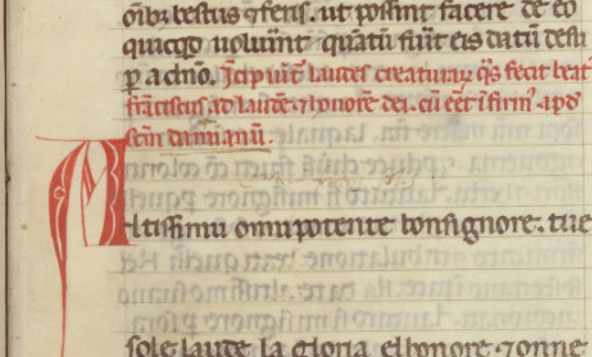 oībȝ bestiis ⁊ feris. ut possint facere de eo
quicq̄d uoluīnt quātū fuīt eis datū desu
ꝑ a dn̄o. Īcipiūt laudes creaturaꝝ q̄s fecit beat᷒
frāciscus ad laudē ⁊ honorē dei. cū eēt īfirm᷒ apd᷒
scm̄ damianū.
Altissimu omnipotente bonsignore. tue
so le laude la gloria el honore ⁊ onne